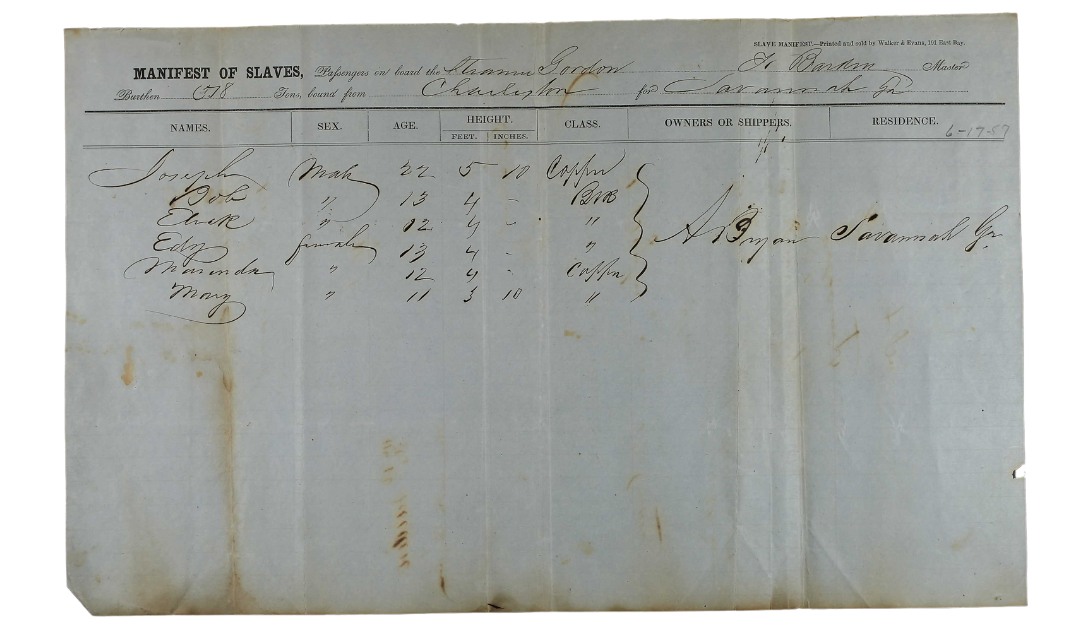 SLAVE MANIFEST.—Printed and sold by Walker & Evans, 101 East Bay.
MANIFEST OF SLAVES, Passengers on board the Steamer Gordon F. Barden Master
Burthen 518 Tons, bound from Charleston for Savannah Ga
NAMES. SEX. AGE. HEIGHT. CLASS. OWNERS OR SHIPPERS. RESIDENCE.
FEET. INCHES.
6-17-57
Joseph Male 22 5 10 Copper
Bob " 13 4 - Blk
" 12 4 - "
Edy female 13 4 - " A Bryan Savannah Ga
Marinda " 12 4 - Copper
Mary " 11 3 10 "